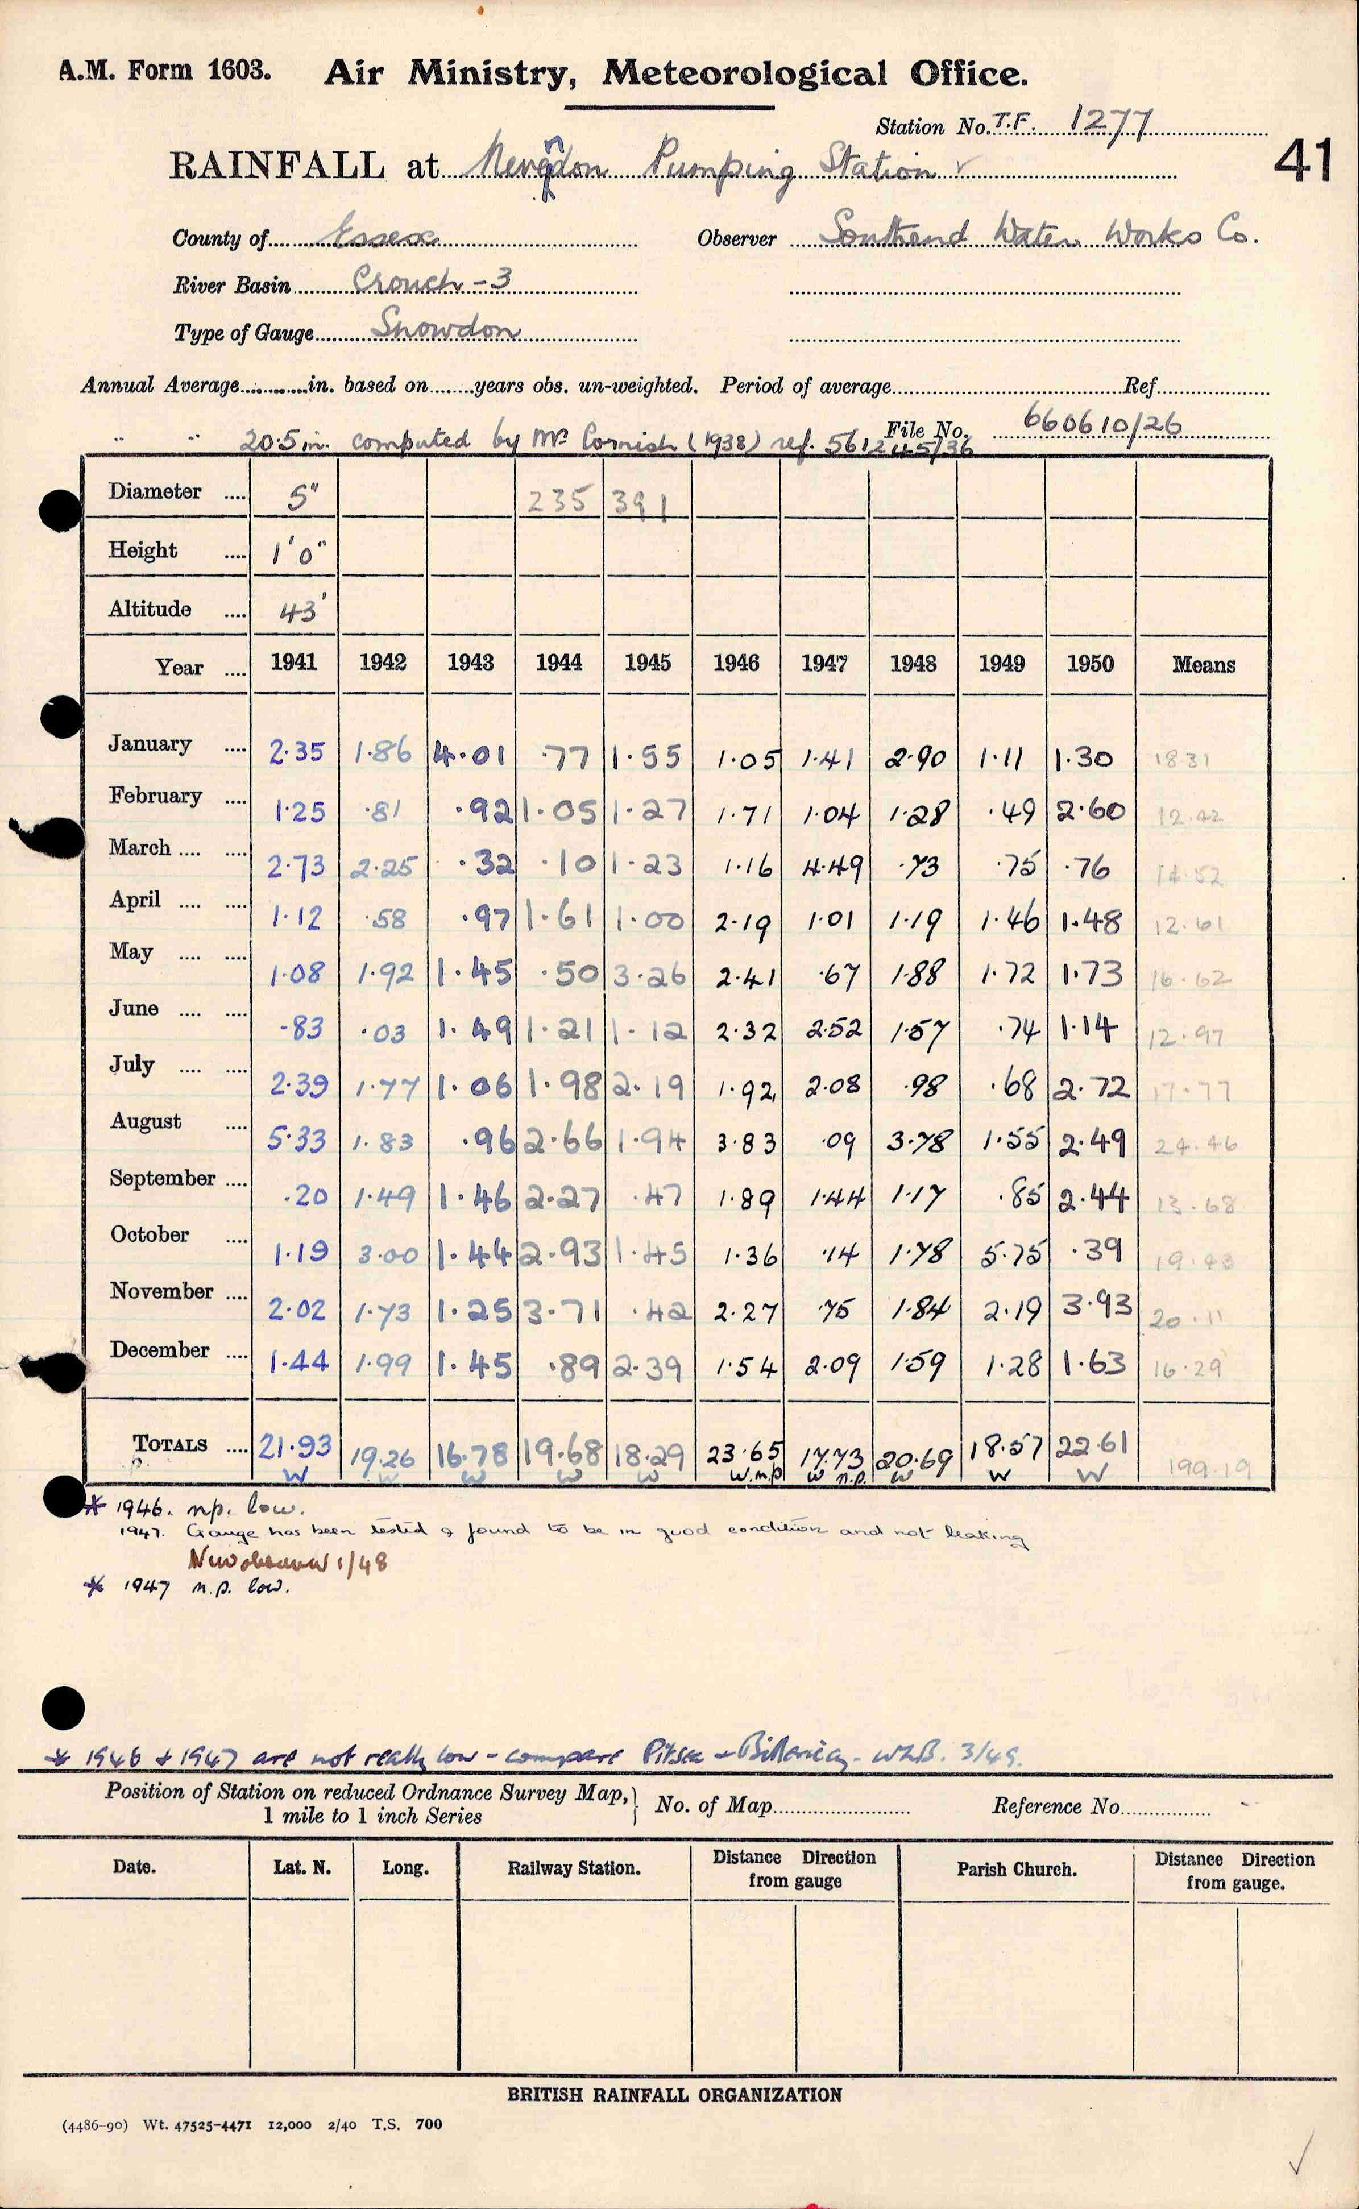 A.M. Form 1603. Air Ministry, Meteorological Office.
Station No. T.F. 1277
41
RAINFALL at Nevendon Pumping Station ✓
County of Essex Observer Southend Water Works Co.
River Basin Crouch - 3
Type of Gauge Snowdon
Annual Average in. based on years obs. un-weighted. Period of average Ref.
" " 20.5 in. computed by Mr Cornish (1938) ref. 561245/36 File No. 660610/26
Diameter 5" 235 391
Height 1'0"
Altitude 43'
Year 1941 1942 1943 1944 1945 1946 1947 1948 1949 1950 Means
January 2.35 1.86 4.01 .77 1.55 1.05 1.41 2.90 1.11 1.30 18.31
February 1.25 .81 .92 1.05 1.27 1.71 1.04 1.28 .49 2.60 12.42
March 2.73 2.25 .32 .10 1.23 1.16 4.49 .73 .75 .76 14.52
April 1.12 .58 .97 1.61 1.00 2.19 1.01 1.19 1.46 1.48 12.61
May 1.08 1.92 1.45 .50 3.26 2.41 .67 1.88 1.72 1.73 16.62
June .83 .03 1.49 1.21 1.12 2.32 2.52 1.57 .74 1.14 12.97
July 2.39 1.77 1.06 1.98 2.19 1.92 2.08 .98 .68 2.72 17.77
August 5.33 1.83 .96 2.66 1.94 3.83 .09 3.78 1.55 2.49 24.46
September .20 1.49 1.46 2.27 .47 1.89 1.44 1.17 .85 2.44 13.68
October 1.19 3.00 1.44 2.93 1.45 1.36 .14 1.78 5.75 .39 19.43
November 2.02 1.73 1.25 3.71 .42 2.27 .75 1.84 2.19 3.93 20.11
December 1.44 1.99 1.45 .89 2.39 1.54 2.09 1.59 1.28 1.63 16.29
TOTALS 21.93 19.26 16.78 19.68 18.29 23.65 17.73 20.69 18.57 22.61 199.19
W W W W W W.n.p W n.p. W W W
* 1946. n.p. low.
1947. Gauge has been tested & found to be in good condition and not leaking
New observer 1/48
* 1947 n.p. low.
* 1946 & 1947 are not really low - compare Pitsea & Billericay - 3/49.
Position of Station on reduced Ordnance Survey Map, 1 mile to 1 inch Series } No. of Map Reference No.
Date. Lat. N. Long. Railway Station. Distance Direction from gauge Parish Church. Distance Direction from gauge.
BRITISH RAINFALL ORGANIZATION
(4486-90) Wt. 47525-4471 12,000 2/40 T.S. 700